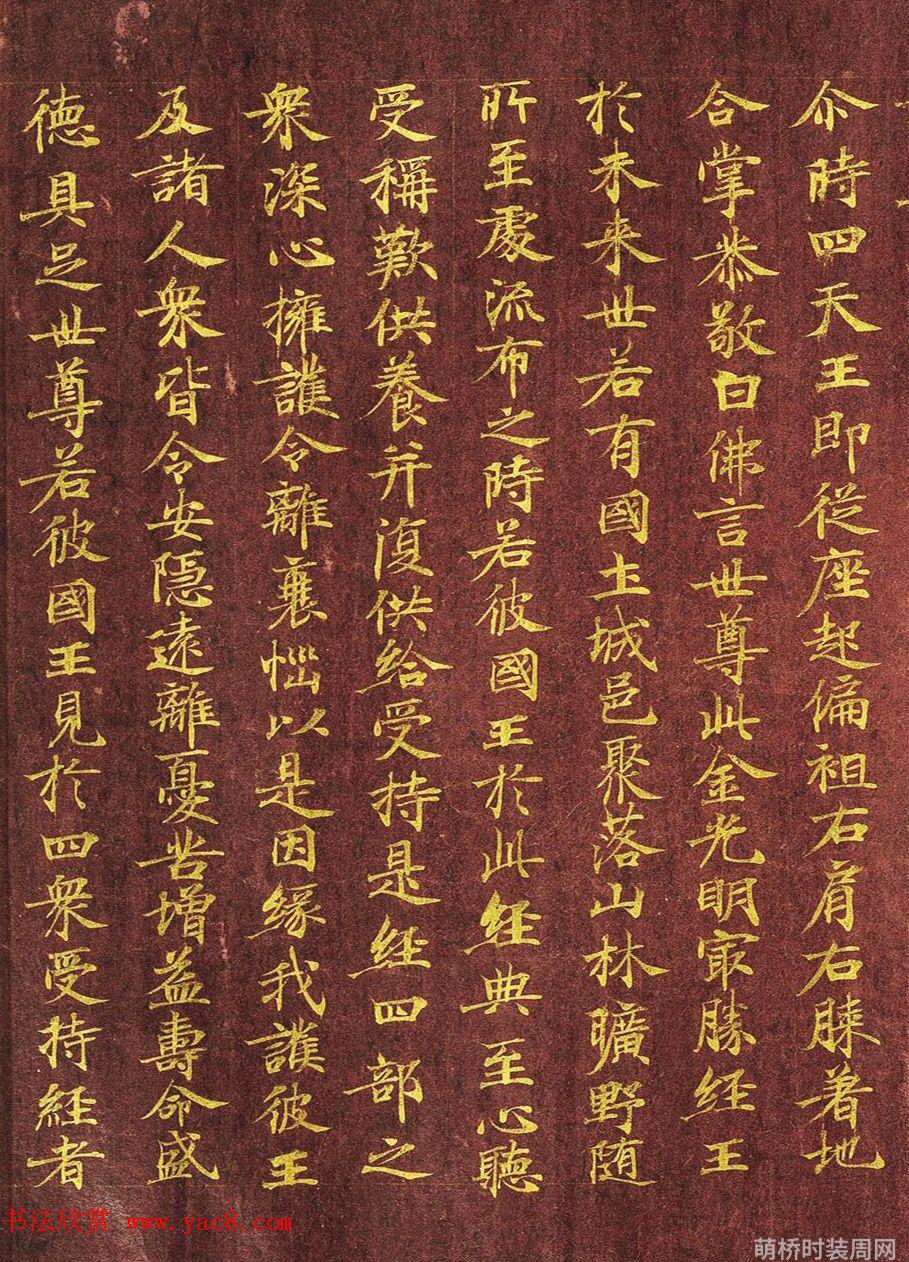 尒時四天王即從座起偏袒右肩右膝著地
合掌恭敬白佛言世尊此金光明㝡勝經王
於未来世若有國土城邑聚落山林曠野随
所至處流布之時若彼國王於此經典至心聽
受稱歎供養并復供給受持是經四部之
衆深心擁護令離衰惱以是因緣我護彼王
及諸人衆皆令安隱遠離憂苦增益壽命盛
德具足世尊若彼國王見於四衆受持經者
书法欣赏 www.yac8.com
萌桥时装周网